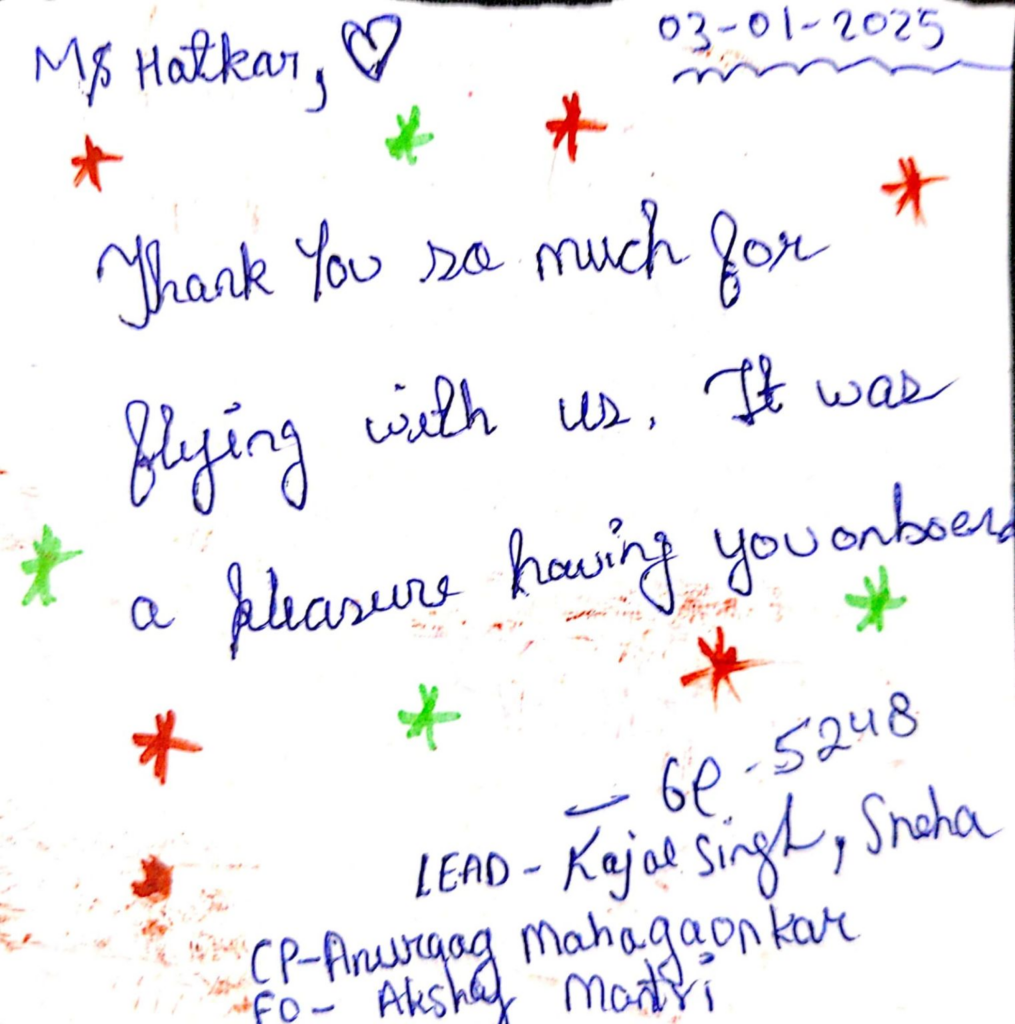 Ms Hatkar,
03-01-2025
Thank You so much for
flying with us. It was
a pleasure having you onboard
- 6e - 5248
LEAD - Kajal Singh, Sneha
CP-Anuraag Mahagaonkar
FO- Akshay Mantri